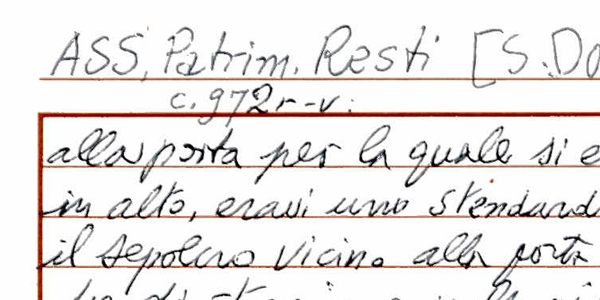 ASS, Patrim. Resti [S. Do
c. 972r-v:
alla porta per la quale si e
in alto, eravi uno stendard
il sepolcro vicino alla porta